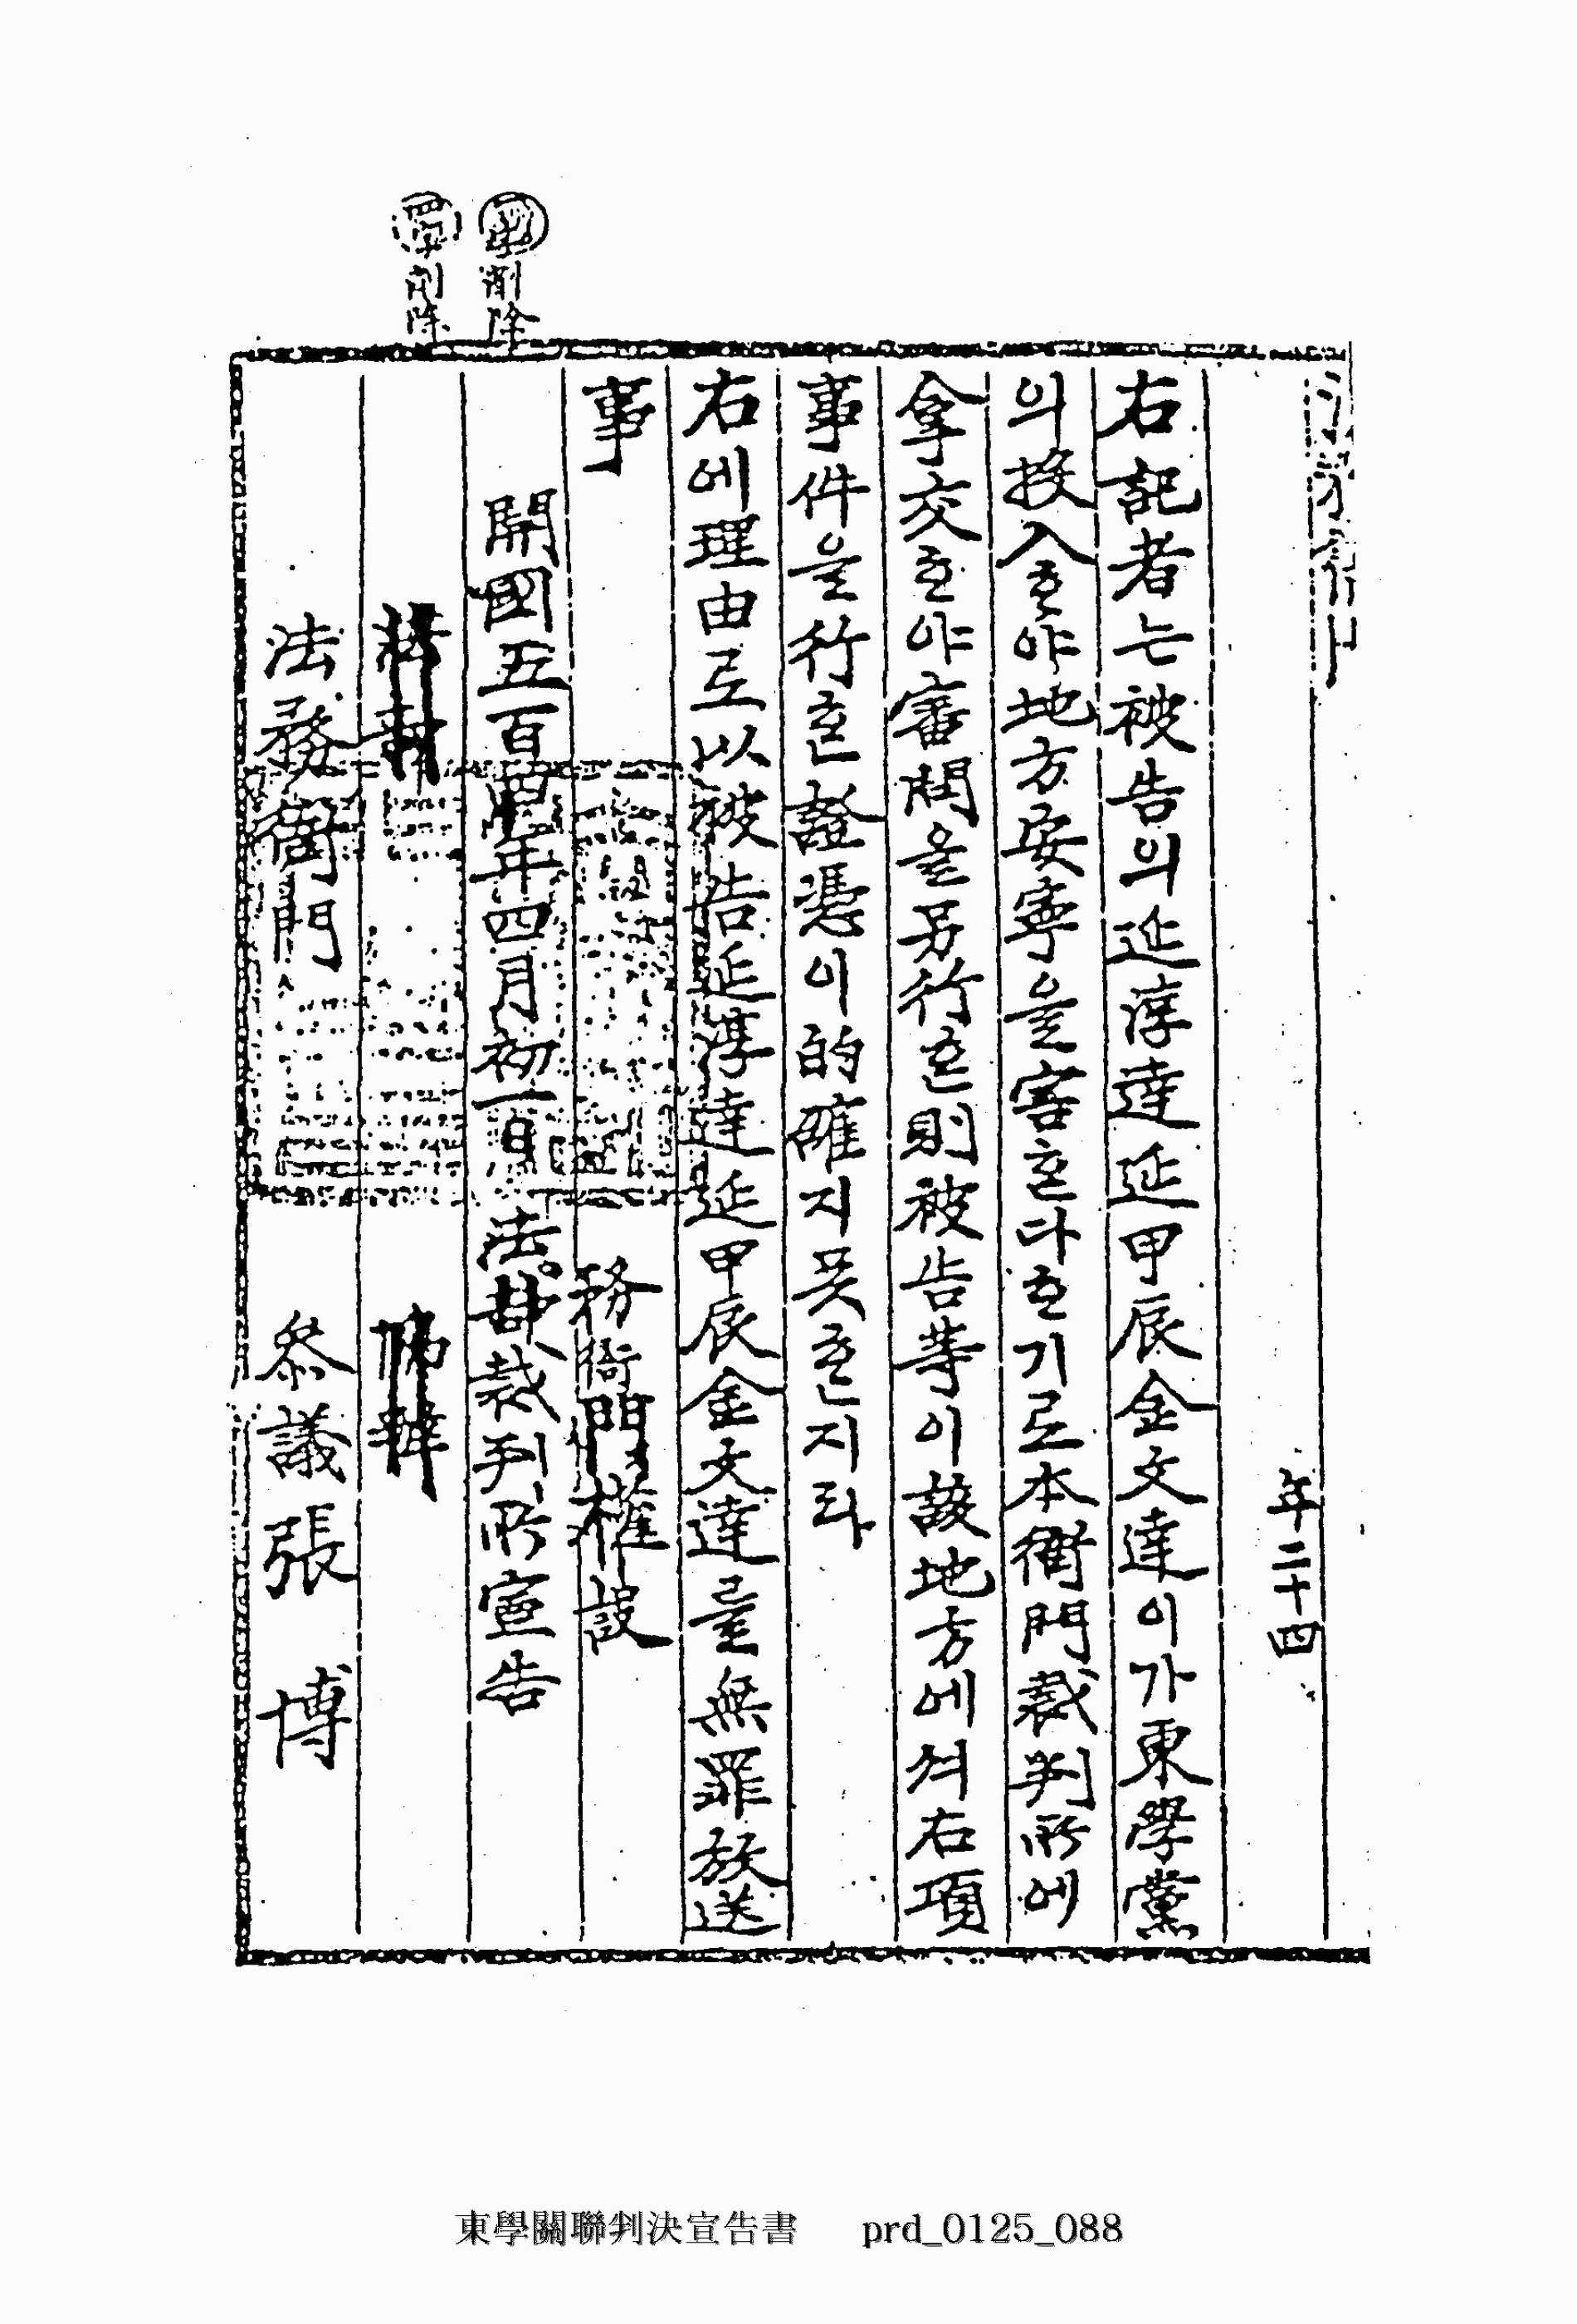 年二十四
右記者는被告의延淳達延甲辰金文達이가東學黨
의接入ᄒᆞ야地方安寧을害ᄒᆞᆫ다ᄒᆞ기로本衙門裁判所에
拿交ᄒᆞ야審問을另行ᄒᆞᆫ則被告等이該地方에셔右項
事件을行ᄒᆞᆫ證憑이的確지못ᄒᆞᆫ지라
右에理由로以被告延淳達延甲辰金文達를無罪放送
事
務衙門權設
開國五百四年四月初一日 法 裁判所宣告
法務衙門 參議張 博
削除
削除
東學關聯判決宣告書 prd_0125_088